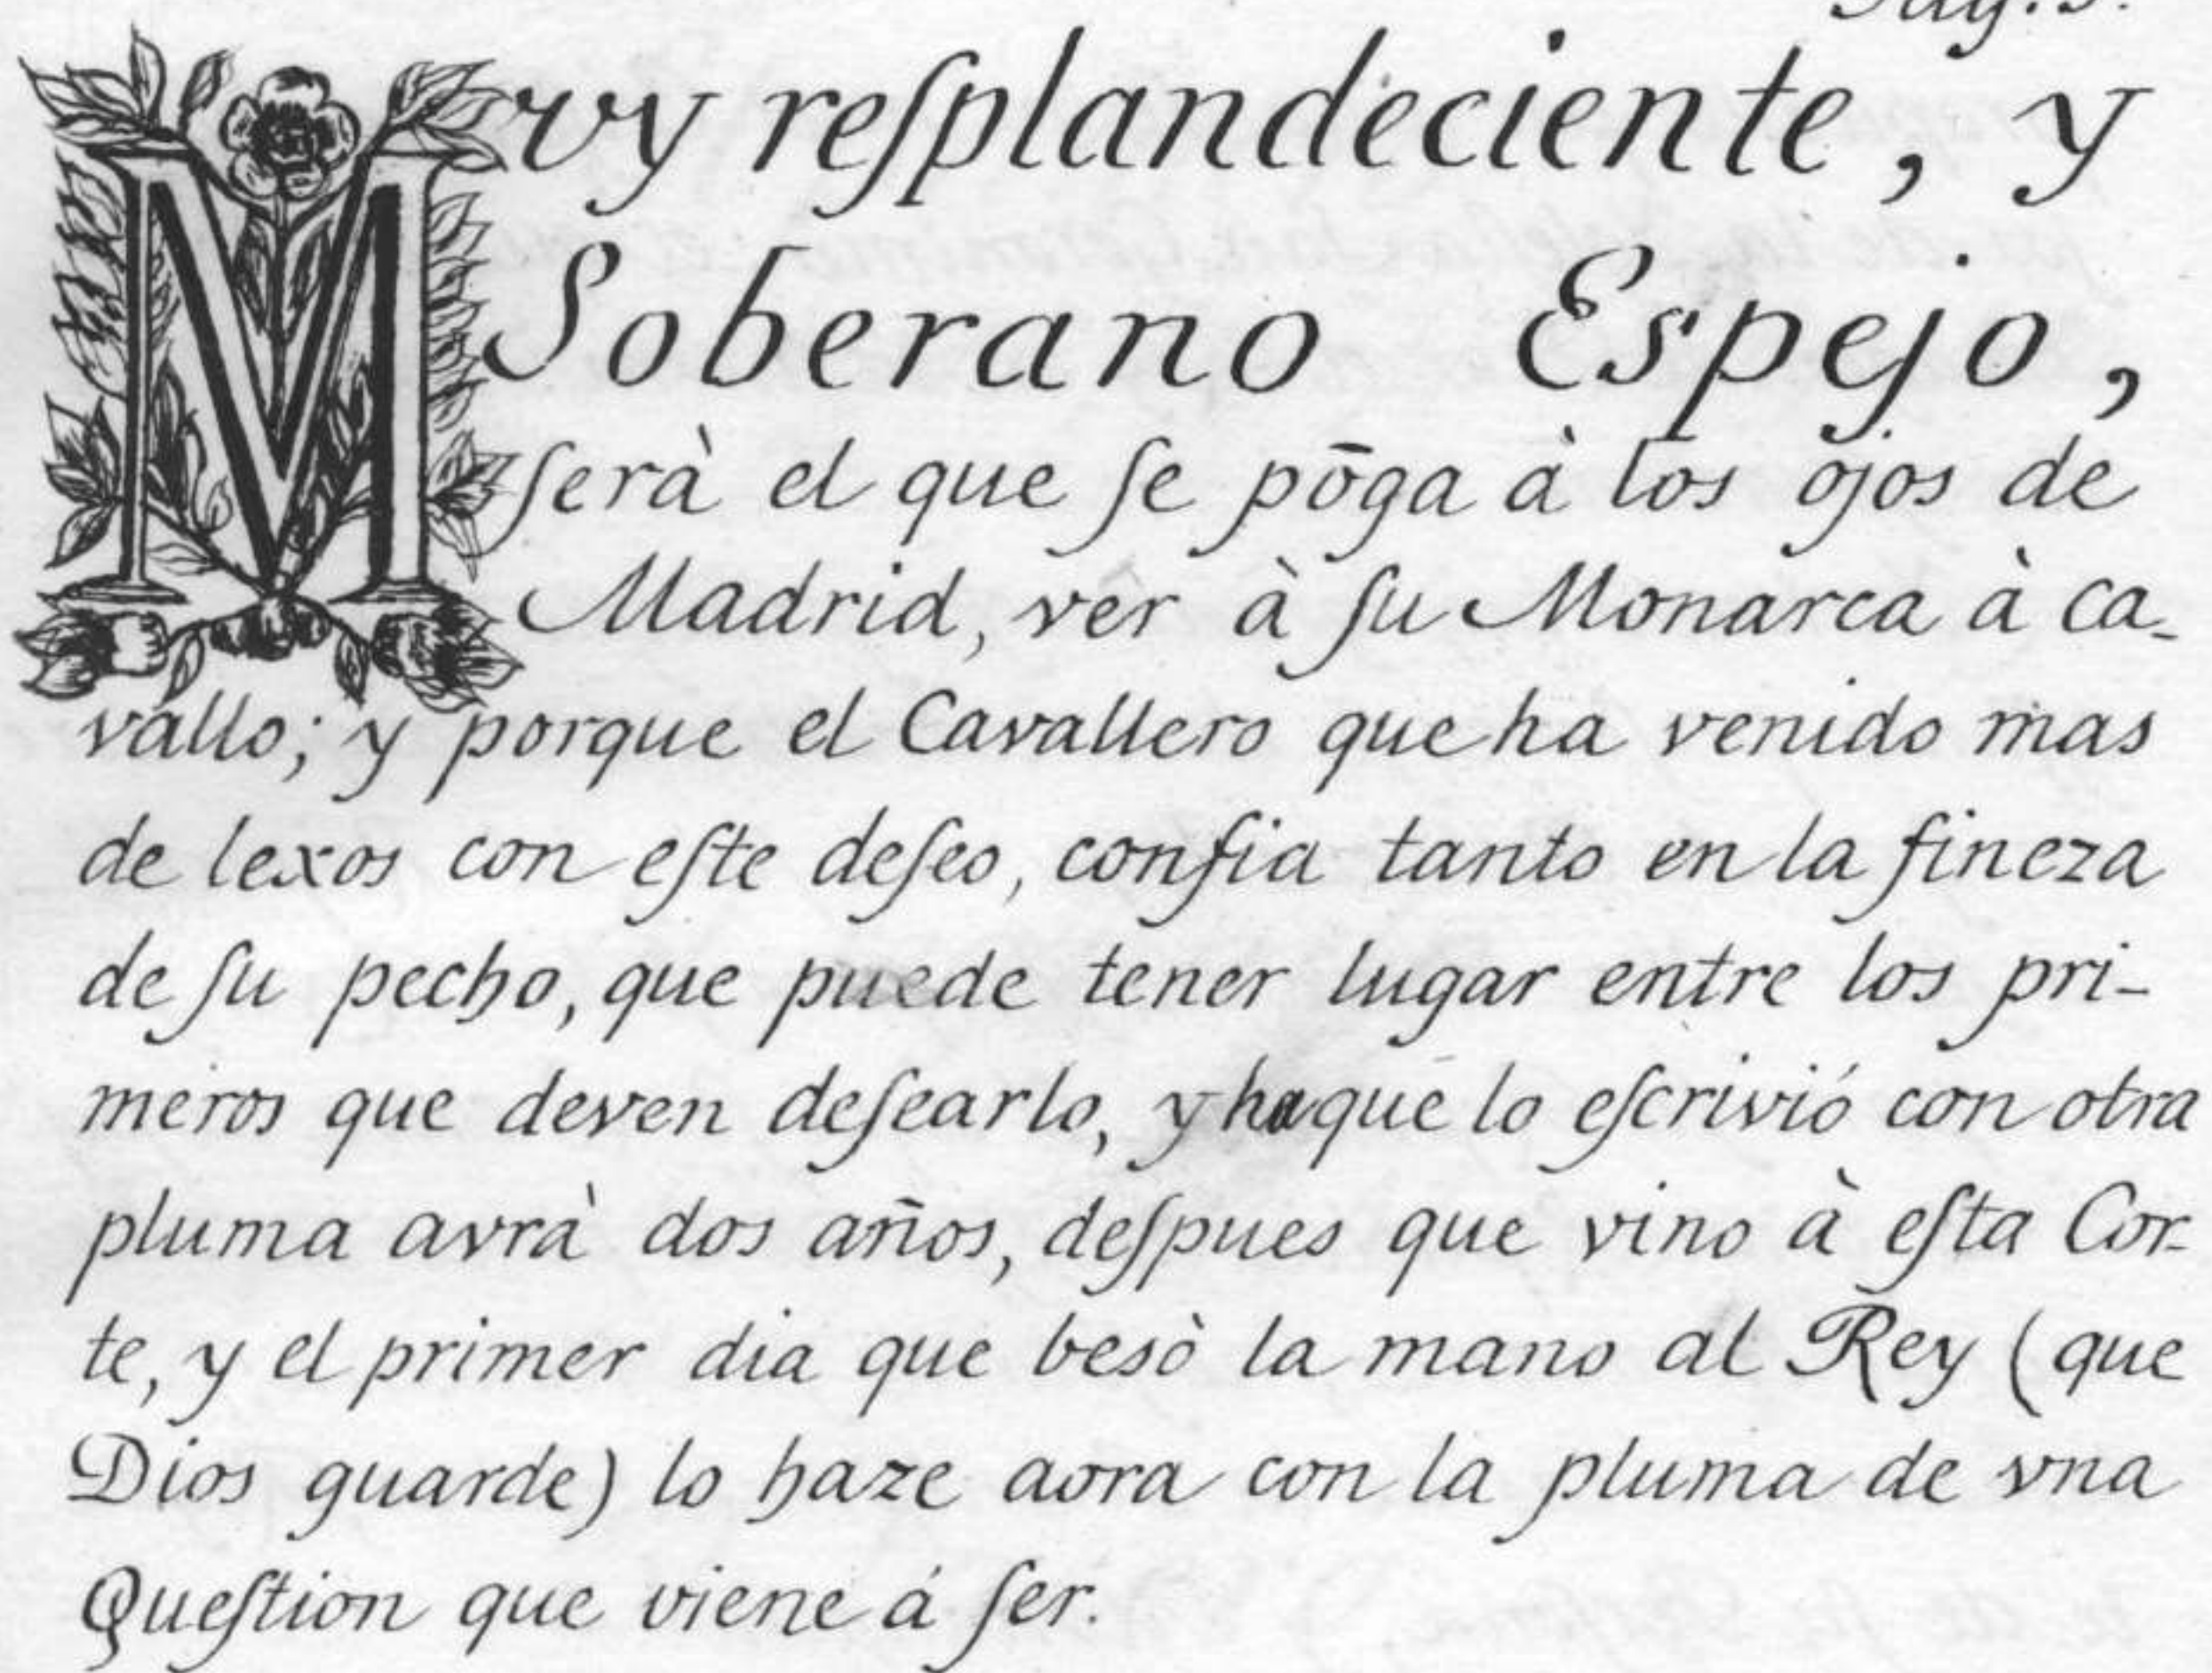 Mvy reſplandeciente, y
Soberano Espejo,
ſerà el que ſe pōga à los ojos de
Madrid, ver à ſu Monarca à ca-
vallo; y porque el Cavallero que ha venido mas
de lexos con eſte deſeo, confia tanto en la fineza
de ſu pecho, que puede tener lugar entre los pri-
meros que deven deſearlo, y haque lo eſcrivió con otra
pluma avrà dos años, deſpues que vino à eſta Cor-
te, y el primer dia que besò la mano al Rey (que
Dios guarde) lo haze aora con la pluma de vna
Queſtion que viene á ſer.